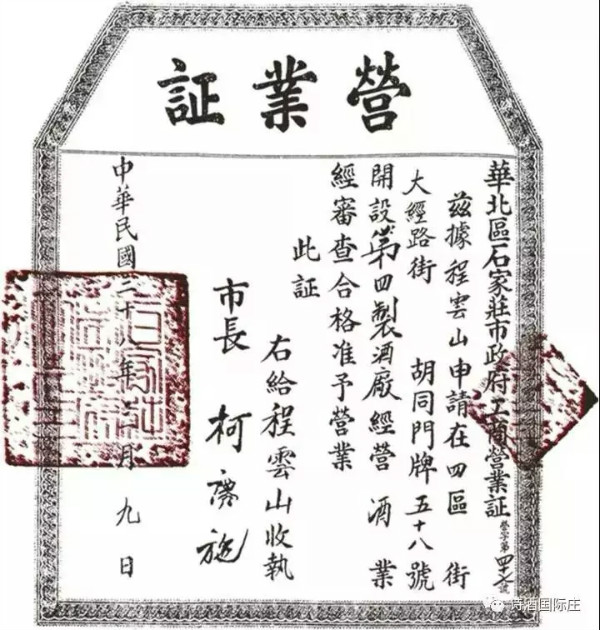 營業証
華北區石家莊市政府工商營業証
茲據程雲山申請在四區 街
大經路街 胡同門牌五十八號
開設第四製酒廠經營酒業
經審查合格准予營業
此証
右給程雲山收執
市長 柯慶施
中華民國三十八年 月九日
诗酒国际庄